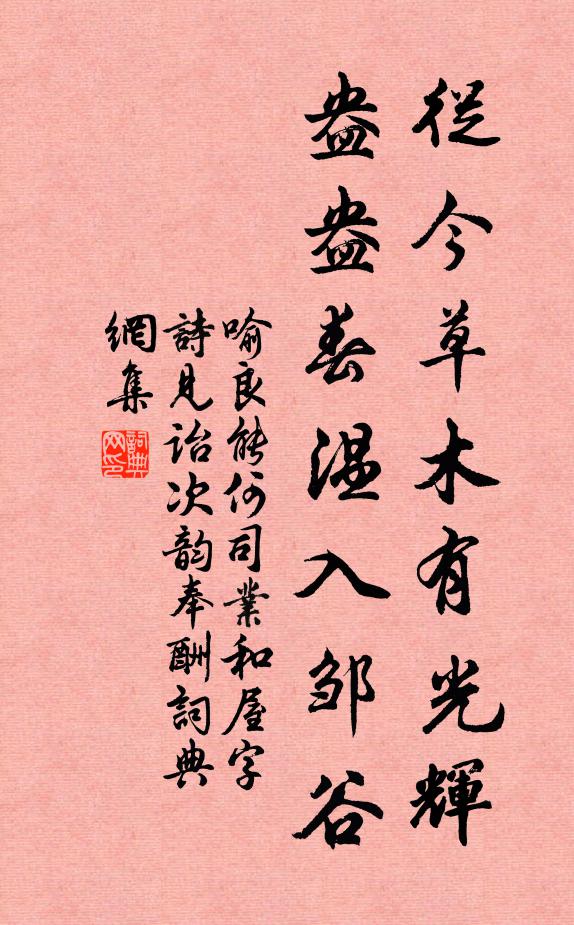 從今草木有光輝
盎盎春温入邹谷
喻良能何司業和屋字
詩見詒次韵奉酬詞典
網集
詞典
网印